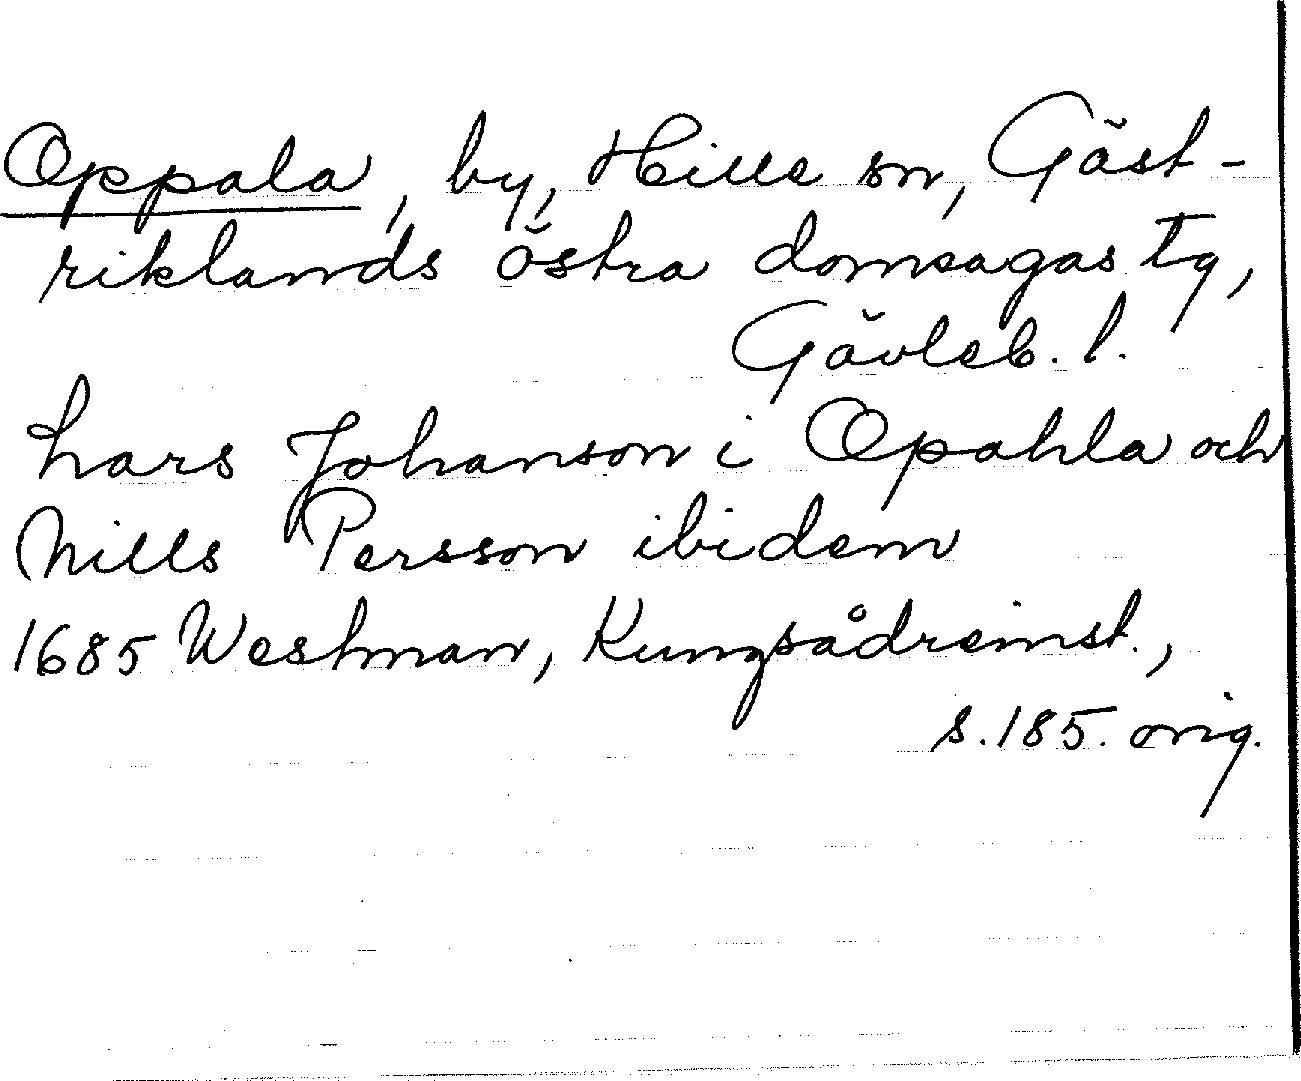 Oppala, by, Hille sn, Gäst-
riklands östra domsagas tg,
Gävleb. l.
Lars Johanson i Opahla och
Nills Persson ibidem
1685 Westman, Kungsådreinst.,
s. 185. orig.